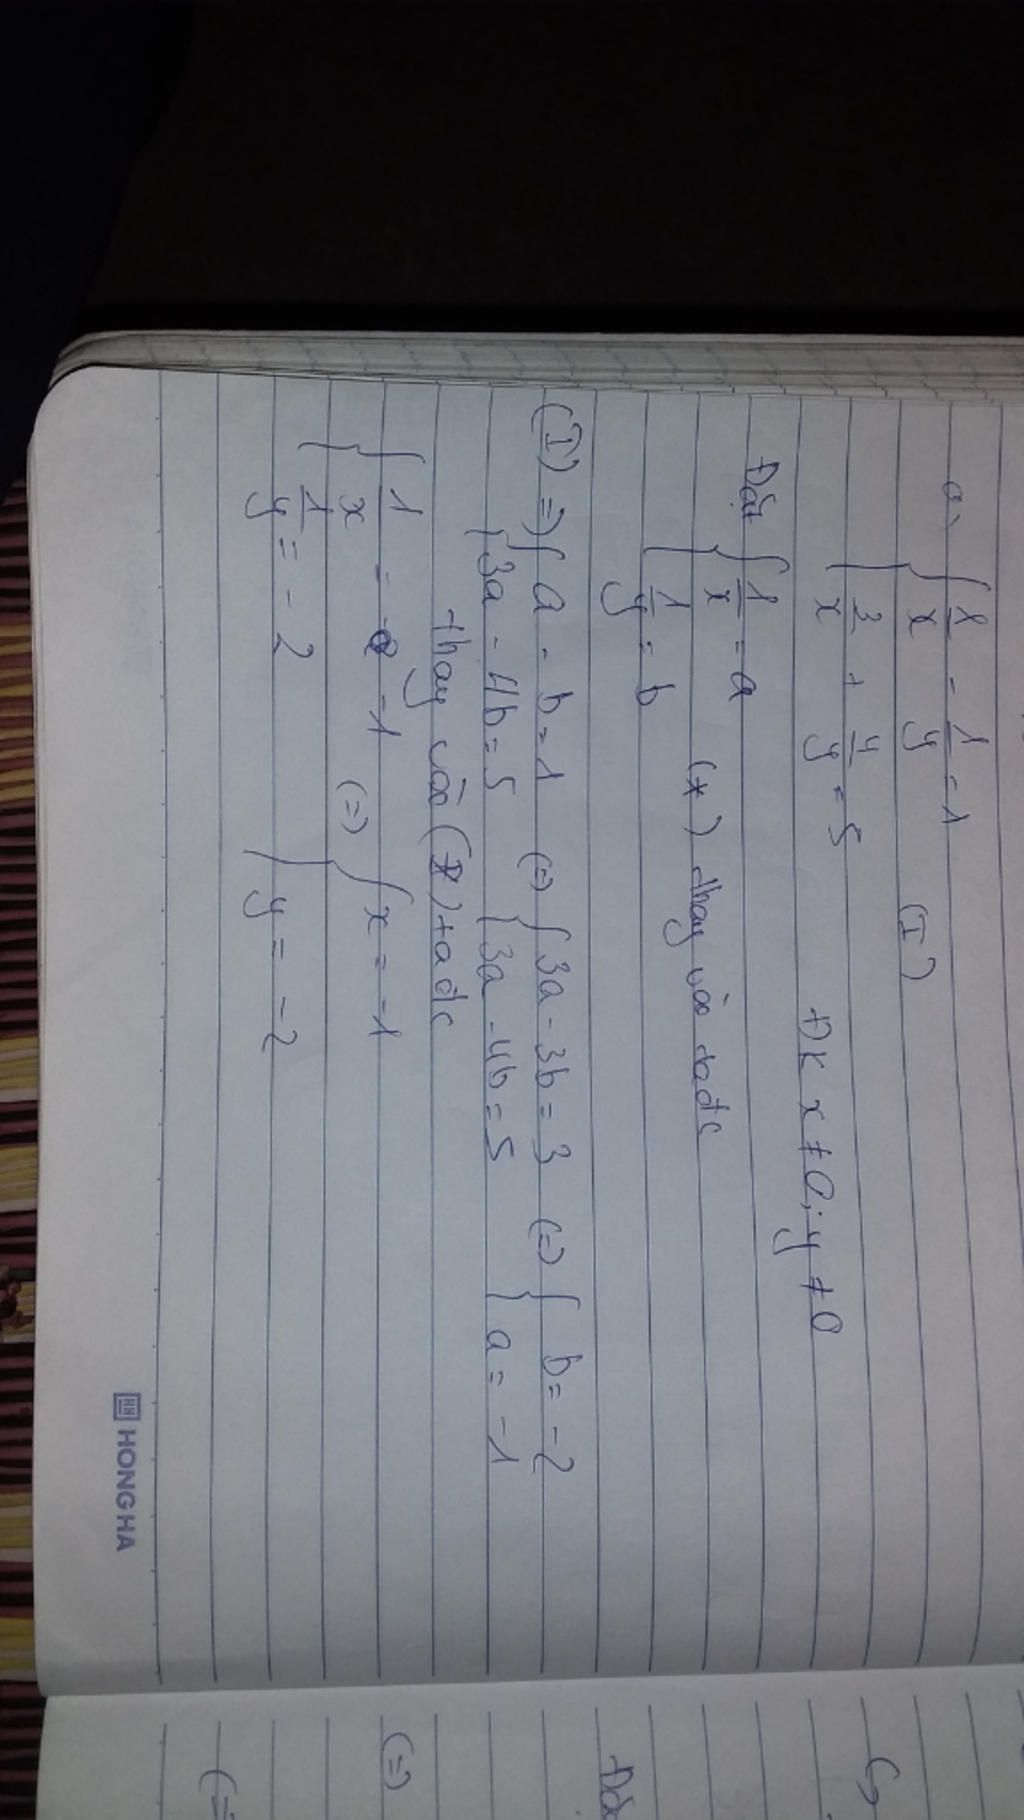 a, { 1/x - 1/y = 1
3/x + 4/y = 5 (I) ĐK x ≠ 0; y ≠ 0
Đặt { 1/x = a
1/y = b (*) thay vào ta đc
(I) => { a - b = 1 (=) { 3a - 3b = 3 (=) { b = -2
{ 3a - 4b = 5 { 3a - 4b = 5 { a = -1
thay vào (*) ta đc
{ 1/x = -1 (=) { x = -1
1/y = -2 y = -2
HONG HA